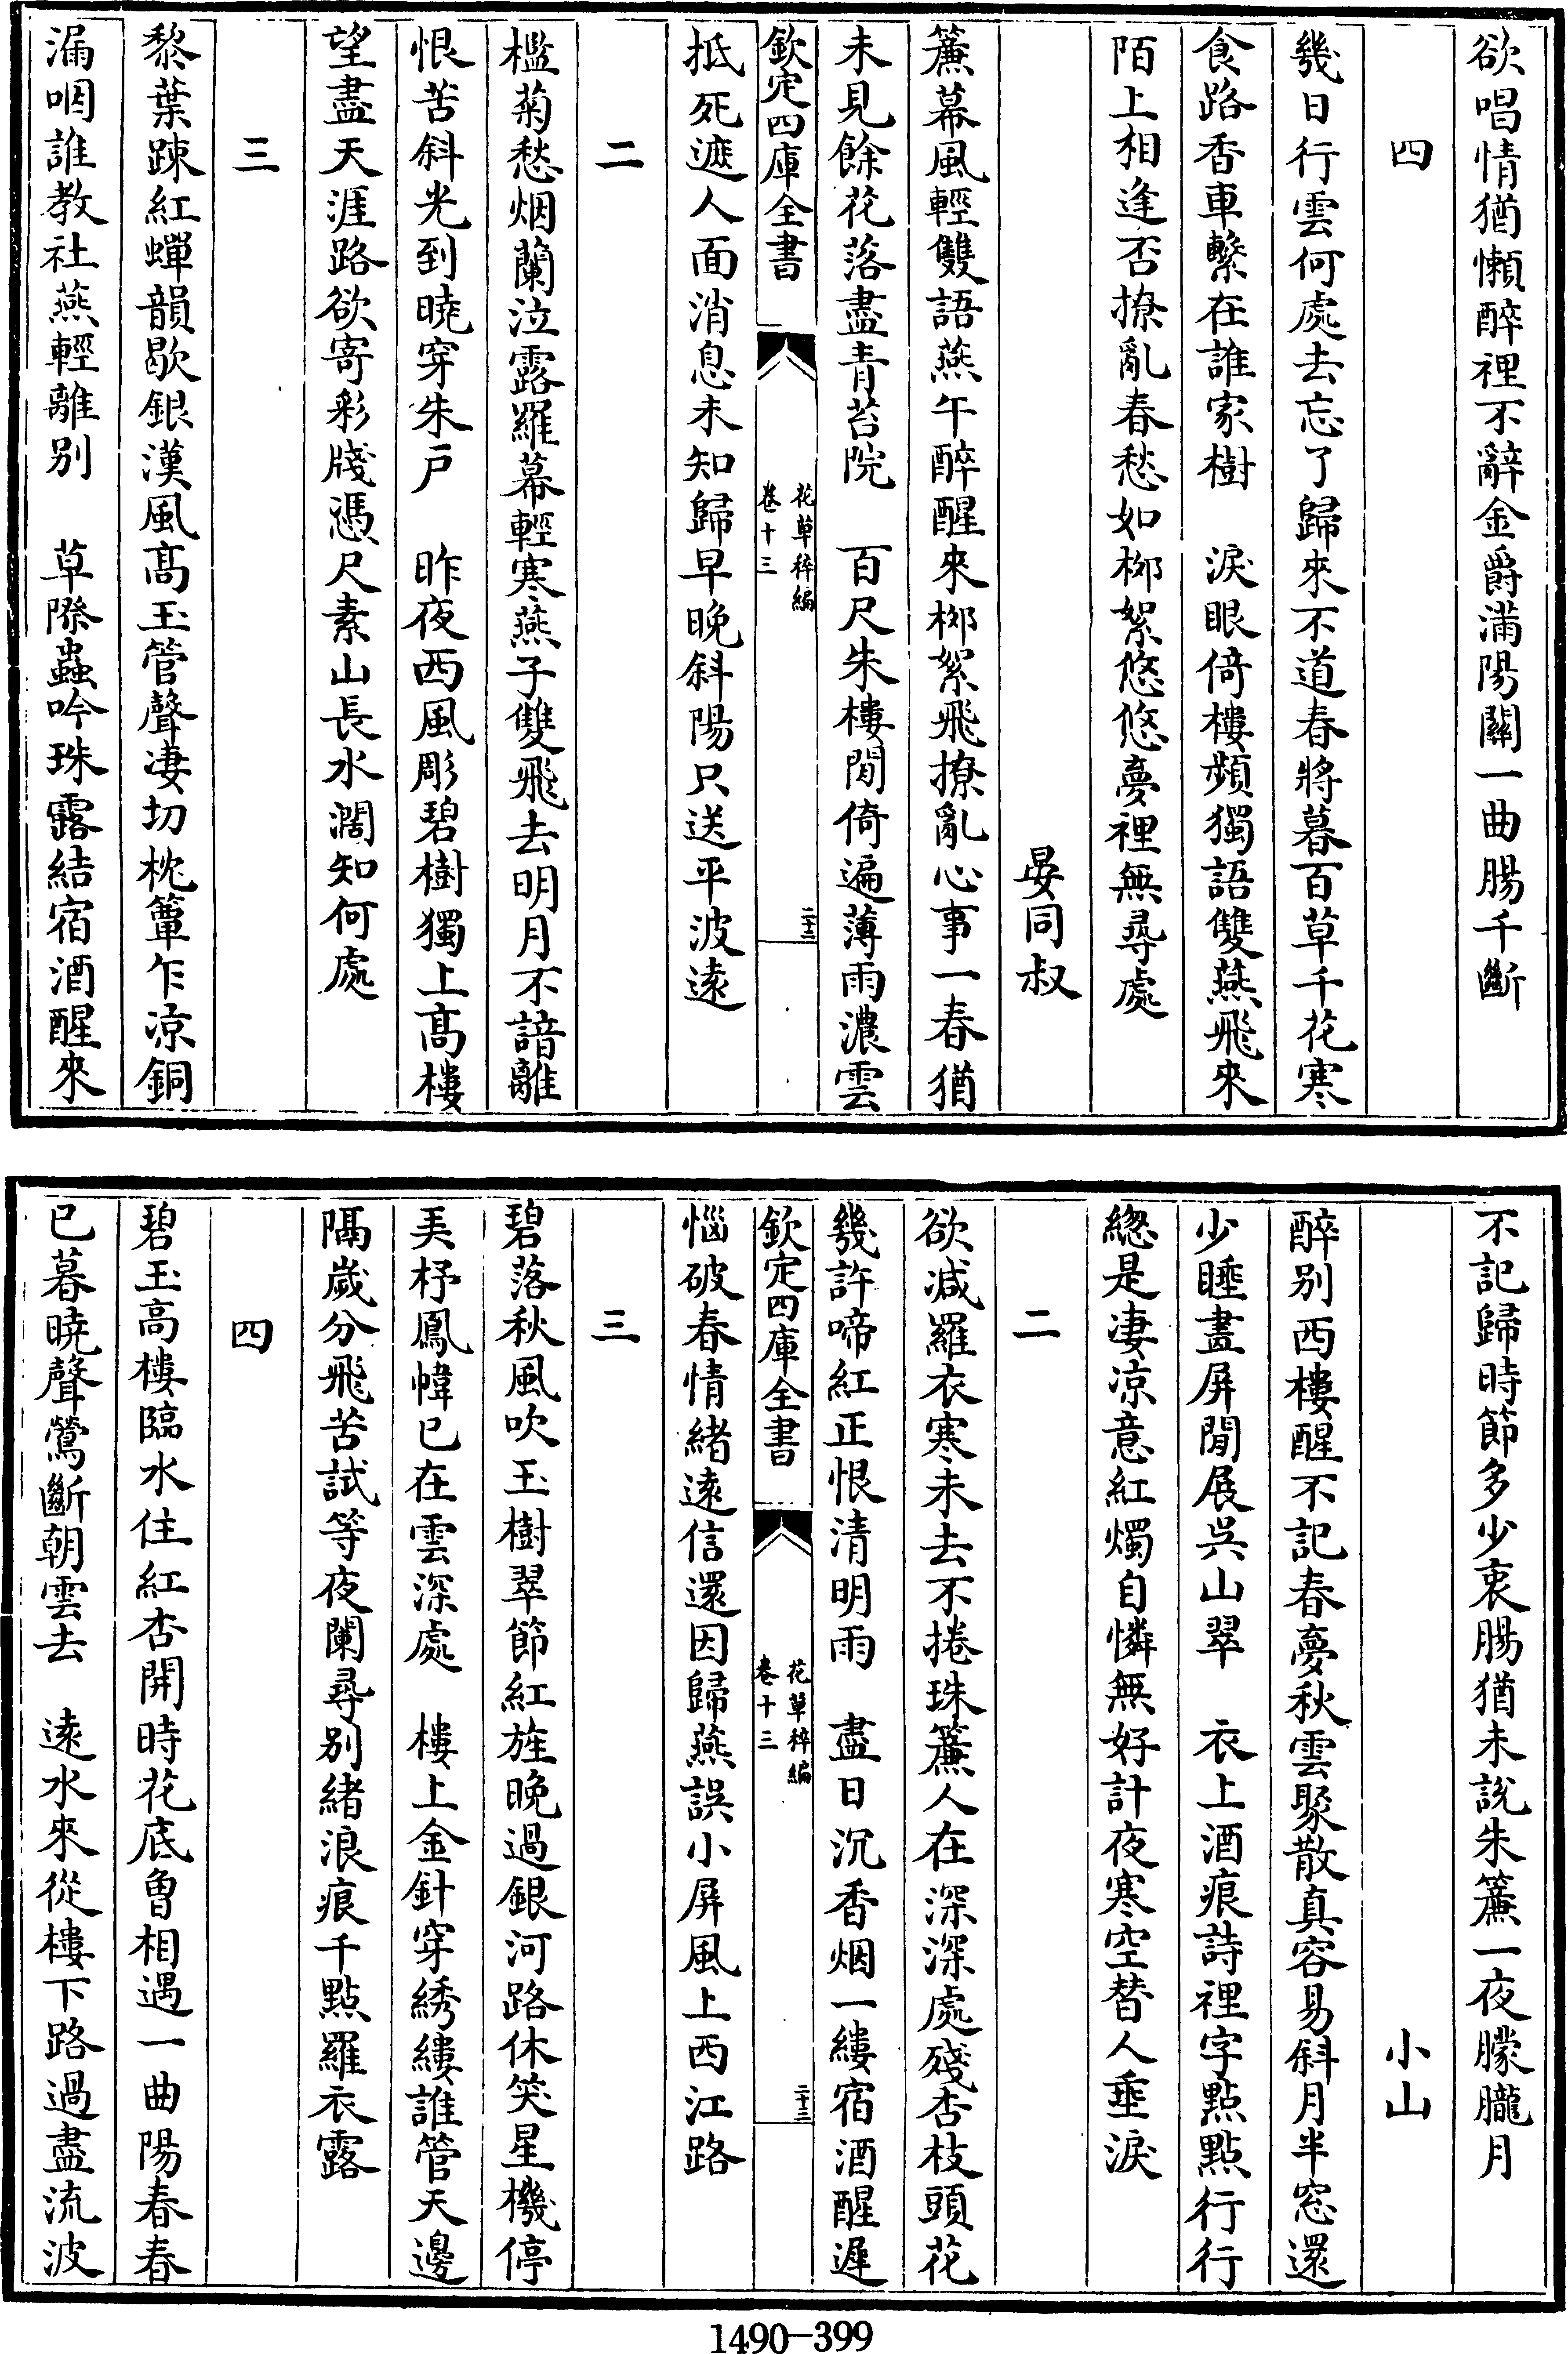 欲唱情猶懶醉裡不辭金爵滿陽關一曲腸千斷
四
幾日行雲何處去忘了歸來不道春將暮百草千花寒
食路香車繫在誰家樹　淚眼倚樓頻獨語雙燕飛來
陌上相逢否撩亂春愁如柳絮悠悠夢裡無尋處
晏同叔
簾幕風輕雙語燕午醉醒來柳絮飛撩亂心事一春猶
未見餘花落盡青苔院　百尺朱樓閒倚遍薄雨濃雲
欽定四庫全書
花草稡編
卷十三
二十二
抵死遮人面消息未知歸早晚斜陽只送平波遠
二
檻菊愁烟蘭泣露羅幕輕寒燕子雙飛去明月不諳離
恨苦斜光到曉穿朱戶　昨夜西風彫碧樹獨上高樓
望盡天涯路欲寄彩牋憑尺素山長水濶知何處
三
黎葉踈紅蟬韻歇銀漢風髙玉管聲凄切枕簟乍凉銅
漏咽誰教社燕輕離别　草際蟲吟珠露結宿酒醒來
不記歸時節多少衷腸猶未說朱簾一夜朦朧月
小山
醉别西樓醒不記春夢秋雲聚散真容易斜月半窓還
少睡畫屏閒展吳山翠　衣上酒痕詩裡字點點行行
緫是凄凉意紅燭自憐無好計夜寒空替人垂淚
二
欲减羅衣寒未去不捲珠簾人在深深處殘杏枝頭花
幾許啼紅正恨清明雨　盡日沉香烟一縷宿酒醒遲
欽定四庫全書
花草稡編
卷十三
二十三
惱破春情緒遠信還因歸燕誤小屏風上西江路
三
碧落秋風吹玉樹翠節紅旌晚過銀河路休笑星機停
美杼鳳幃已在雲深處　樓上金針穿綉縷誰管天邊
隔嵗分飛苦試等夜闌尋别緒浪痕千點羅衣露
四
碧玉高樓臨水住紅杏開時花底曾相遇一曲陽春春
已暮曉聲鶯斷朝雲去　遠水來從樓下路過盡流波
1490-399